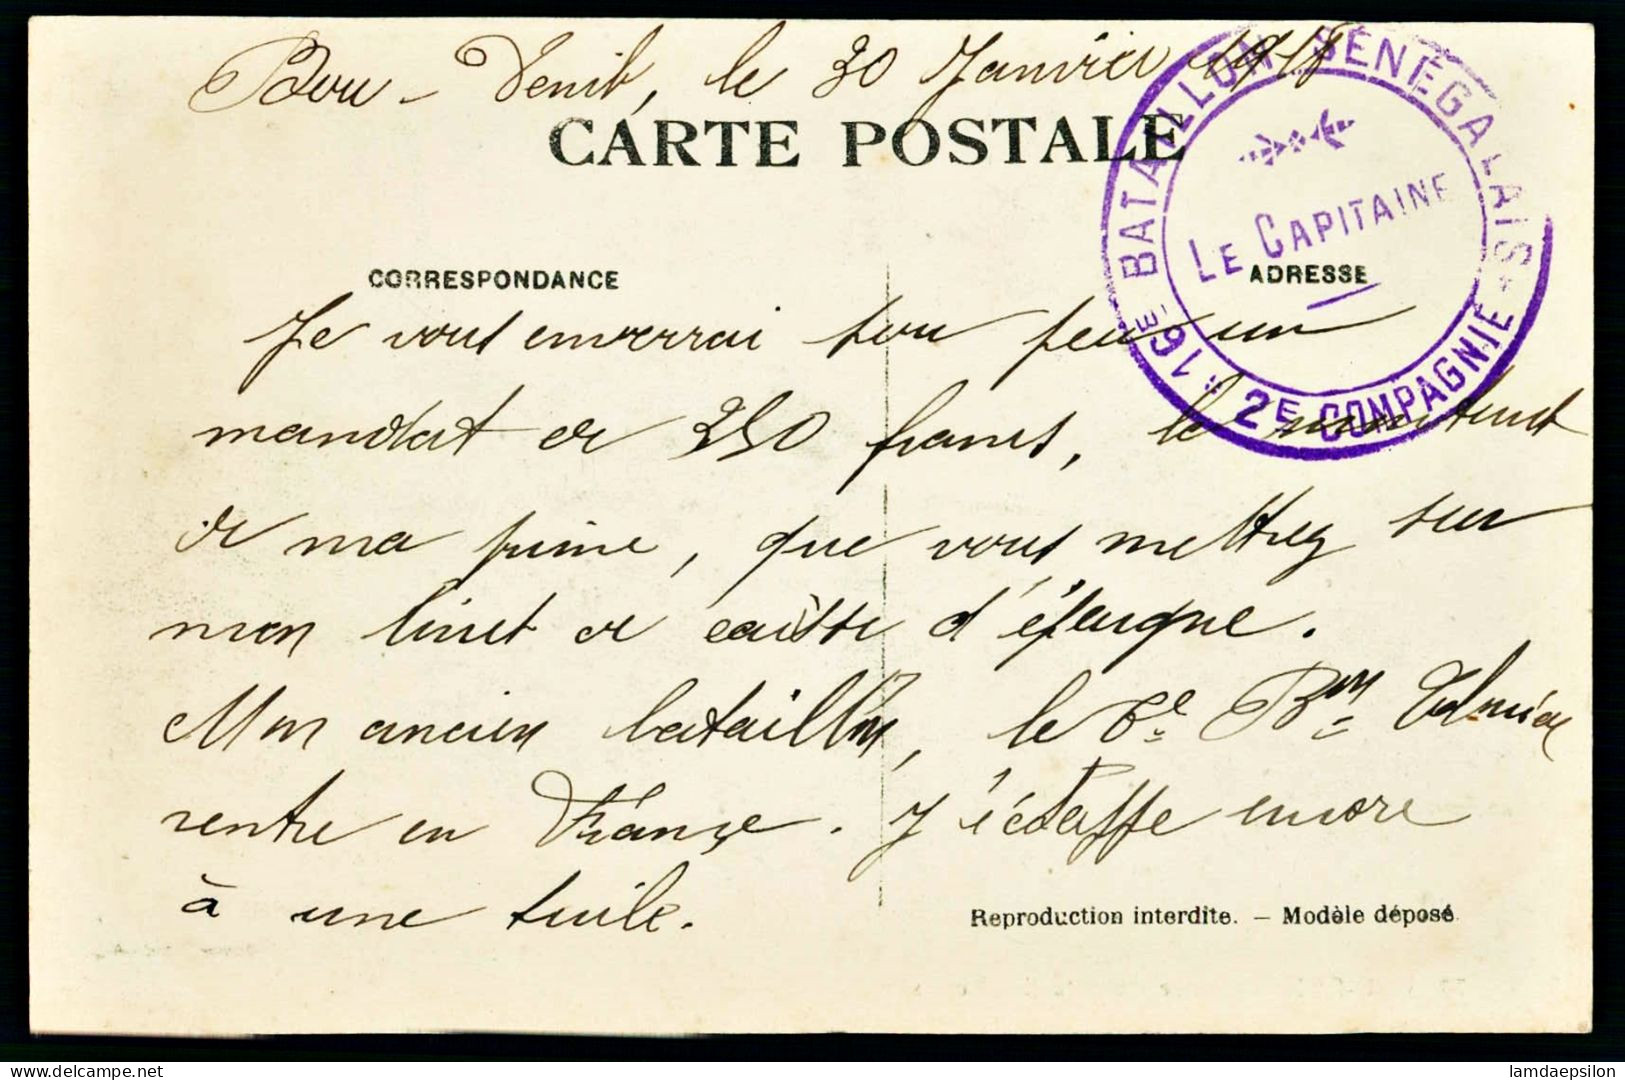 Bou-Denib, le 30 Janvier 1918
CARTE POSTALE
91E BATAILLON SÉNÉGALAIS
LE CAPITAINE
2E COMPAGNIE
CORRESPONDANCE
ADRESSE
Je vous enverrai sou peu un
mandat de 250 francs, le montant
de ma prime, que vous mettrez sur
mon livret de caisse d'épargne.
Mon ancien bataillon, le 6e Bon
rentre en France. J'écoffe encore
à une tuile.
Reproduction interdite. — Modèle déposé
lamdaepsilon